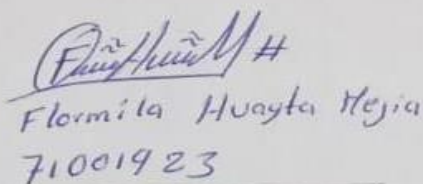 Flormila Huayta Mejia
71001923